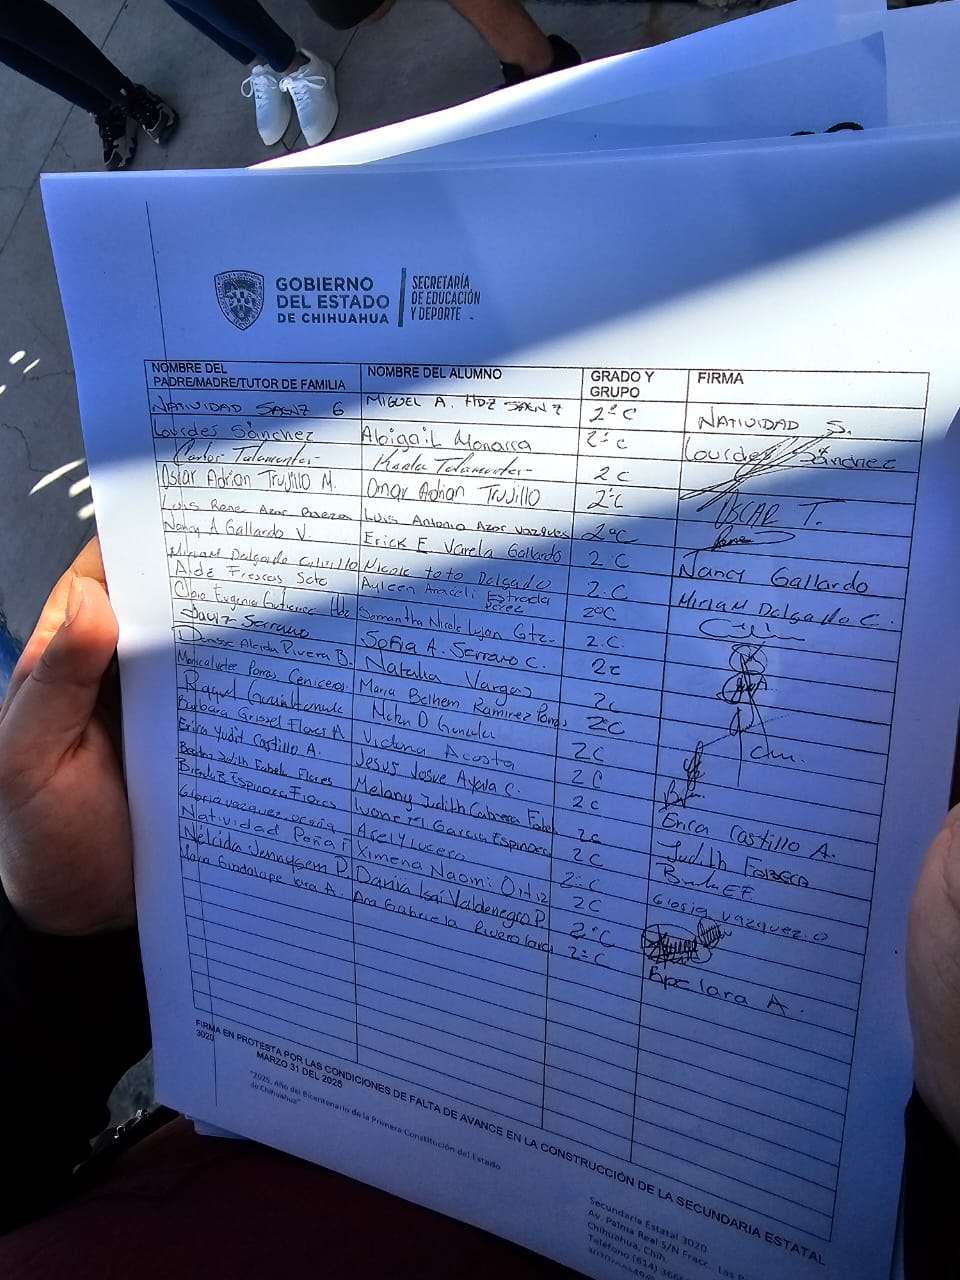 GOBIERNO
DEL ESTADO
DE CHIHUAHUA
SECRETARÍA
DE EDUCACIÓN
Y DEPORTE
NOMBRE DEL
PADRE/MADRE/TUTOR DE FAMILIA NOMBRE DEL ALUMNO GRADO Y
GRUPO FIRMA
NATIVIDAD SAENZ G MIGUEL A. HDZ SAENZ 2º C NATIVIDAD S.
Lourdes Sánchez Abigail Monarca 2º C Lourdes Sánchez
Carlos Talamantes Karla Talamantes 2 C
Oscar Adrian Trujillo M. Omar Adrian Trujillo 2º C OSCAR T.
Luis Rene Azar Luis Antonio Azar Vazquez 2ºC
Nancy A Gallardo V. Erick E. Varela Gallardo 2 C Nancy Gallardo
Miriam Delgado Nicole Toto Delgado 2.C Miriam Delgado C.
Aide Frescas Soto Ayleen Araceli Estrada
Pérez 2ºC
Eugenia Gutierrez Samantha Nicole Lujan Gtz. 2.C.
David Serrano Sofia A. Serrano C. 2C
Denisse Aleida Rivera B. Natalia Vargas 2C
Porras Ceniceros Maria Bethem Ramirez Porras 2ºC
Raquel D. 2C
Barbara Grissel Flores A Victoria Acosta 2C
Erika Yudit Castillo A. Jesus Josue Ayala C. 2C Erica Castillo A.
Judith Flores Melany Judith Cabrera 2C Judith
Brenda B. Espinoza Flores Ivone M Garcia Espinoza 2C
Gloria Vazquez Arely Lucero 2º C Gloria Vazquez. O
Natividad Peña Ximena Naomi Ortiz 2C
Nélida Jennysem D. Dania Isai Valdenegro P. 2ºC
Guadalupe Lara A. Ana Gabriela Rivero Lara 2º C Lara A.
FIRMA EN PROTESTA POR LAS CONDICIONES DE FALTA DE AVANCE EN LA CONSTRUCCIÓN DE LA SECUNDARIA ESTATAL
3020
MARZO 31 DEL 2025
"2025, Año del Bicentenario de la Primera Constitución del Estado
de Chihuahua"
Secundaria Estatal 3020
Av. Palma Real S/N Fracc. Las
Chihuahua, Chih.
Teléfono (614)